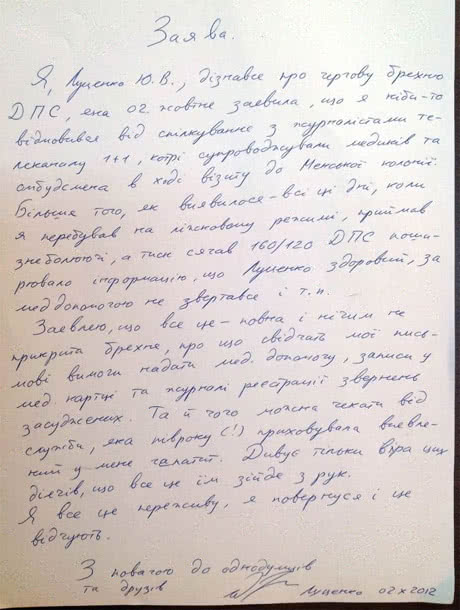 Заява.
Я, Луценко Ю.В., дізнався про чергову брехню
ДПС, яка 02. жовтня заявила, що я ніби-то
відмовився від спілкування з журналістами те-
леканалу 1+1, котрі супроводжували медиків та
омбудсмена в ході візиту до Менської колонії.
Більше того, як виявилося - всі ці дні, коли
я перебував на ліжковому режимі, приймав
знеболюючі, а тиск сягав 160/120 ДПС поши-
рювало інформацію, що Луценко здоровий, за
мед допомогою не звертався і т.п.
Заявляю, що все це - повна і нічим не
прикрита брехня, про що свідчать мої пись-
мові вимоги надати мед. допомогу, записи у
мед. картці та журналі реєстрації звернень
засуджених. Та й чого можна чекати від
служби, яка півроку (!) приховувала виявле-
ний у мене гепатит. Дивує тільки віра цих
діячів, що все це їм зійде з рук.
Я все це переживу, я повернуся і це
відчують.
З повагою до однодумців
та друзів
Луценко 02 X 2012